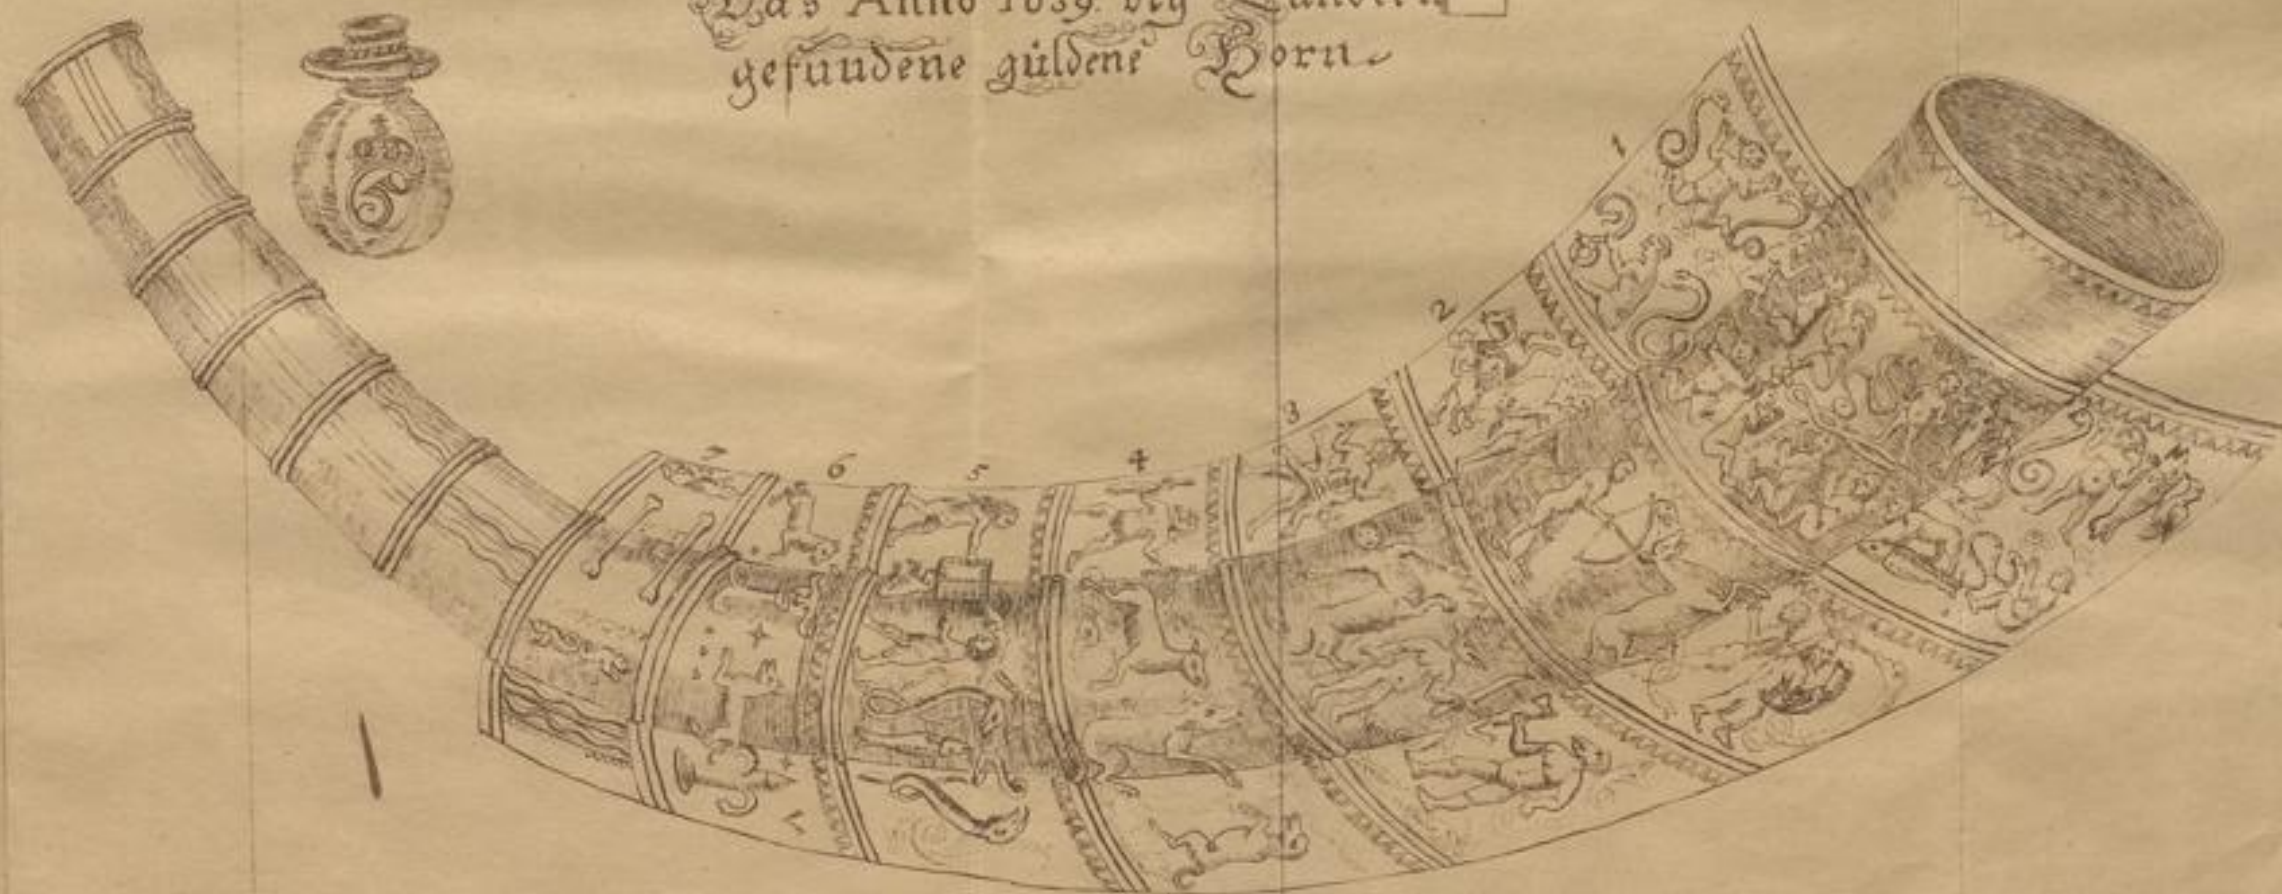 Das Anno 1639. bey
gefundene güldene Horn
1
2
3
4
5
6
7